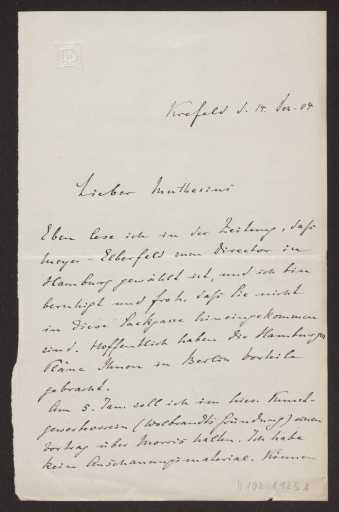 Krefeld d. 14. Dez. 04
Lieber Muthesius
Eben lese ich in der Zeitung, daß
Meyer-Elberfeld zum Director in
Hamburg gewählt ist, und ich bin
beruhigt und froh, daß Sie nicht
in diese Sackgasse hineingekommen
sind. Hoffentlich haben die Hamburger
Pläne Ihnen in Berlin Vorteile
gebracht.
Am 5. Jan. soll ich im hies. Kunst-
gewerbeverein (Wolbrandts Gründung) einen
Vortrag über Morris halten. Ich habe
kein Anschauungsmaterial. Können